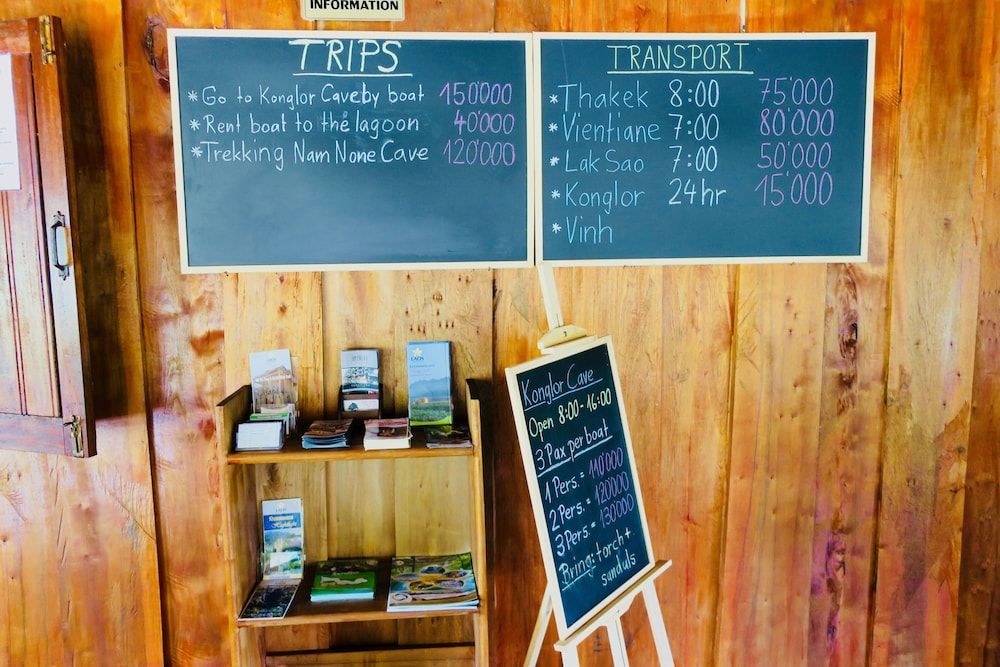 INFORMATION
TRIPS
* Go to Konglor Caveby boat 150'000
* Rent boat to the lagoon 40'000
* Trekking Nam None Cave 120'000
TRANSPORT
* Thakek 8:00 75'000
* Vientiane 7:00 80'000
* Lak Sao 7:00 50'000
* Konglor 24hr 15'000
* Vinh
Konglor Cave
Open 8:00-16:00
3 Pax per boat
1 Pers. = 110'000
2 Pers. = 120'000
3 Pers. = 130'000
Bring: torch +
sanduls
LAOS